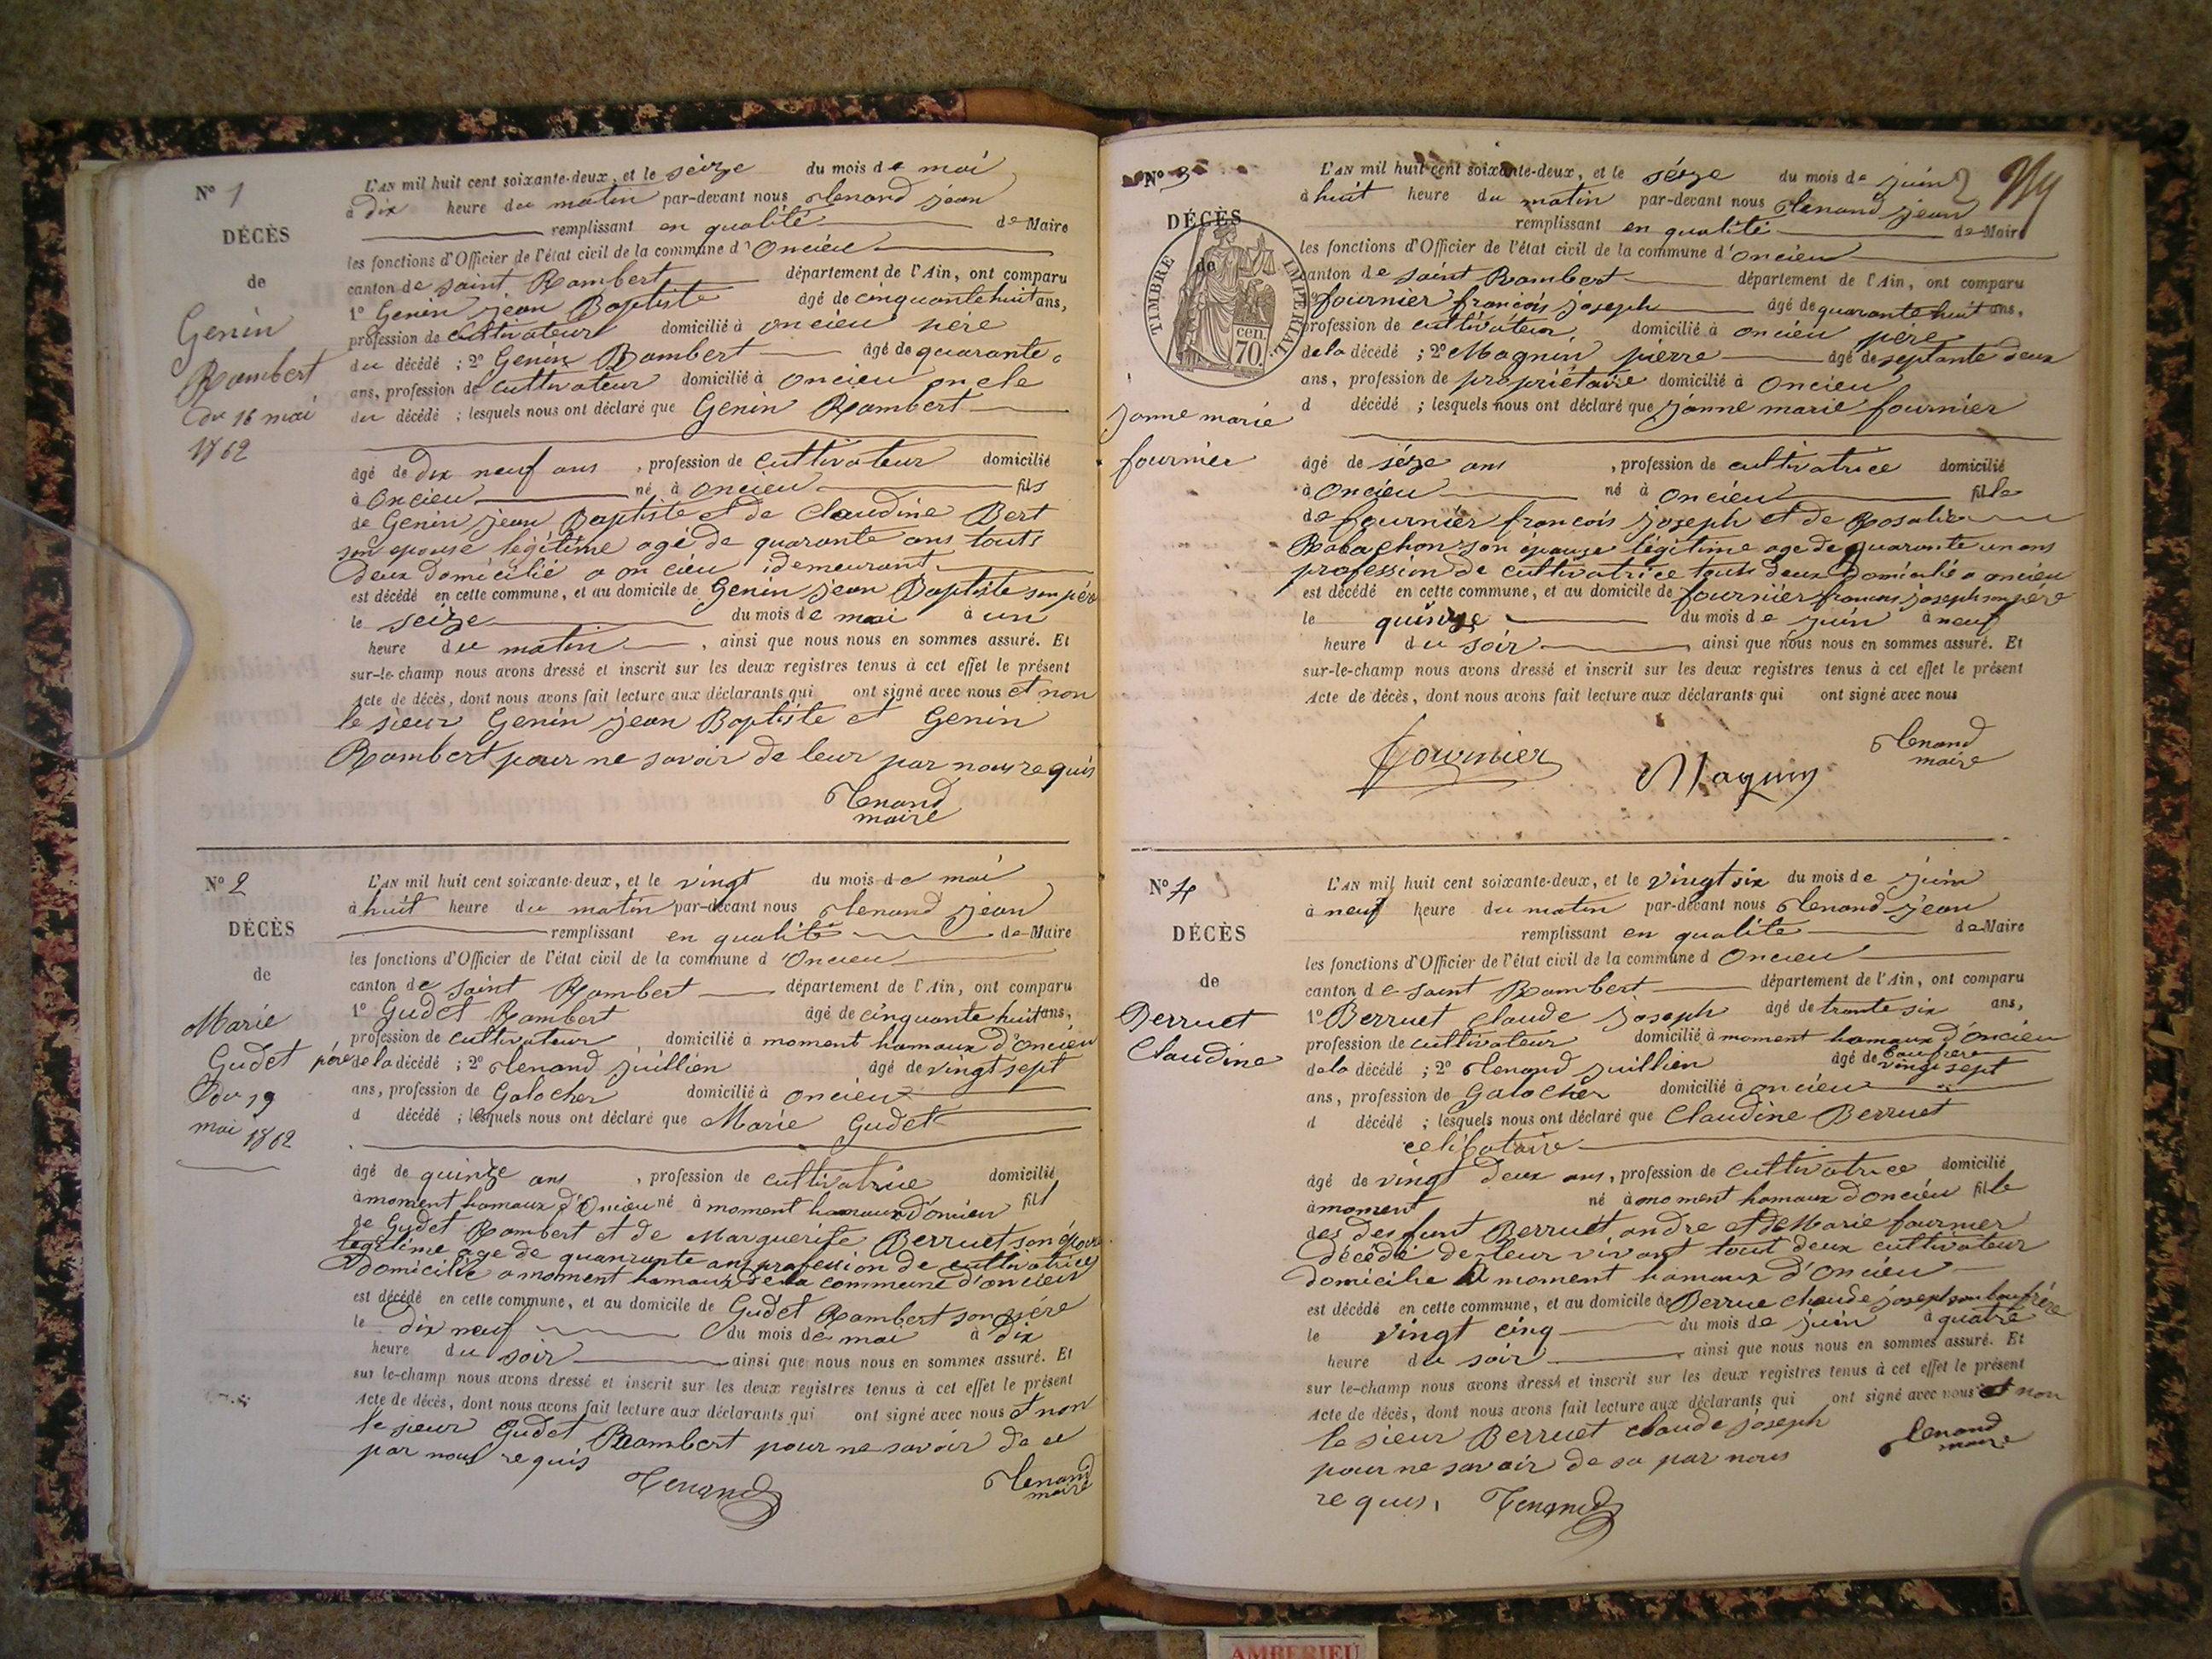 N° 1
DÉCÈS
de
Genin
Rambert
du 16 mai
1862
L'AN mil huit cent soixante-deux, et le seize du mois de mai
à dix heure du matin par-devant nous Tenand jean
remplissant en qualité de Maire
les fonctions d'Officier de l'état civil de la commune d'Oncieu
canton de saint Rambert département de l'Ain, ont comparu
1° Genin jean Baptiste âgé de cinquante huit ans,
profession de cultivateur domicilié à oncieu père
du décédé ; 2° Genin Rambert âgé de quarante
ans, profession de cultivateur domicilié à oncieu oncle
du décédé ; lesquels nous ont déclaré que Genin Rambert
âgé de dix neuf ans , profession de cultivateur domicilié
à Oncieu né à oncieu fils
de Genin jean Baptiste et de Claudine Bert
son epouse légitime agé de quarante ans touts
deux domicilié a on cieu idemeurant
est décédé en cette commune, et au domicile de Genin jean Baptiste son père
le seize du mois de mai à un
heure du matin , ainsi que nous nous en sommes assuré. Et
sur-le-champ nous avons dressé et inscrit sur les deux registres tenus à cet effet le présent
Acte de décès, dont nous avons fait lecture aux déclarants qui ont signé avec nous et non
le sieur Genin jean Baptiste et Genin
Rambert pour ne savoir de leur par nous requis
Tenand
maire
N° 2
DÉCÈS
de
Marie
Gudet
du 19
mai 1862
L'AN mil huit cent soixante-deux, et le vingt du mois de mai
à huit heure du matin par-devant nous Tenand jean
remplissant en qualité de Maire
les fonctions d'Officier de l'état civil de la commune d'Oncieu
canton de saint Rambert département de l'Ain, ont comparu
1° Gudet Rambert âgé de cinquante huit ans,
profession de cultivateur , domicilié à moment hamaux d'oncieu
père de la décédé ; 2° Tenand juillien âgé de vingt sept
ans, profession de Galocher domicilié à oncieu
d décédé ; lesquels nous ont déclaré que Marie Gudet
âgé de quinze ans , profession de cultivatrice domicilié
à moment hamaux d'Oncieu né à moment hamaux d'oncieu fill
de Gudet Rambert et de Marguerite Berruet son épouse
légitime age de quanrante ans profession de cultivatrice
domicilié a moment hamaux de la commune d'oncieu
est décédé en cette commune, et au domicile de Gudet Rambert son père
le dix neuf du mois de mai à dix
heure du soir ainsi que nous nous en sommes assuré. Et
sur le-champ nous avons dressé et inscrit sur les deux registres tenus à cet effet le présent
Acte de décès, dont nous avons fait lecture aux déclarants qui ont signé avec nous et non
le sieur Gudet Rambert pour ne savoir de ce
par nous requis
Tenand
Tenand
maire
N° 3
DÉCÈS
de
TIMBRE IMPÉRIAL
70 cen
janne marie
fournier
L'AN mil huit cent soixante-deux, et le séize du mois de juin
à huit heure du matin par-devant nous Tenand jean
remplissant en qualité de Maire
les fonctions d'Officier de l'état civil de la commune d'oncieu
canton de saint Rambert département de l'Ain, ont comparu
1° fournier françois joseph âgé de quarante huit ans,
profession de cultivateur domicilié à oncieu père
de la décédé ; 2° Magnin pierre âgé de septante deux
ans, profession de propriétaire domicilié à Oncieu
d décédé ; lesquels nous ont déclaré que janne marie fournier
âgé de séize ans , profession de cultivatrice domicilié
à Oncieu né à oncieu fille
de fournier francois joseph et de Rosalie
son épouze légitime age de quarante un ans
profession de cultivatrice touts deux domicilié a oncieu
est décédé en cette commune, et au domicile de fournier francois joseph son père
le quinze du mois de juin à neuf
heure du soir , ainsi que nous nous en sommes assuré. Et
sur-le-champ nous avons dressé et inscrit sur les deux registres tenus à cet effet le présent
Acte de décès, dont nous avons fait lecture aux déclarants qui ont signé avec nous
Fournier
Magnin
Tenand
maire
N° 4
DÉCÈS
de
Berruet
Claudine
L'AN mil huit cent soixante-deux, et le vingt six du mois de juin
à neuf heure du matin par-devant nous Tenand jean
remplissant en qualité de Maire
les fonctions d'Officier de l'état civil de la commune d Oncieu
canton de saint Rambert département de l'Ain, ont comparu
1° Berruet Claude joseph âgé de trante six ans,
profession de cultivateur domicilié à moment hamaux d'oncieu
beaufrere
de la décédé ; 2° Tenand juillien âgé de vingt sept
ans, profession de Galocher domicilié à oncieu
d décédé ; lesquels nous ont déclaré que Claudine Berruet
celibataire
âgé de vingt deux ans, profession de cultivatrice domicilié
à moment né à moment hamaux d'oncieu fille
des desfunt Berruet andre et de Marie fournier
décédé de leur vivant tout deux cultivateur
domicilie A moment hamaux d'Oncieu
est décédé en cette commune, et au domicile de Berrue Claude joseph son beaufrére
le vingt cinq du mois de juin à quatre
heure du soir , ainsi que nous nous en sommes assuré. Et
sur le-champ nous avons dressé et inscrit sur les deux registres tenus à cet effet le présent
Acte de décès, dont nous avons fait lecture aux déclarants qui ont signé avec nous et non
le sieur Berruet claude joseph
pour ne savoir de sa par nous
requis,
Tenand
Tenand
maire
AMBERIEU